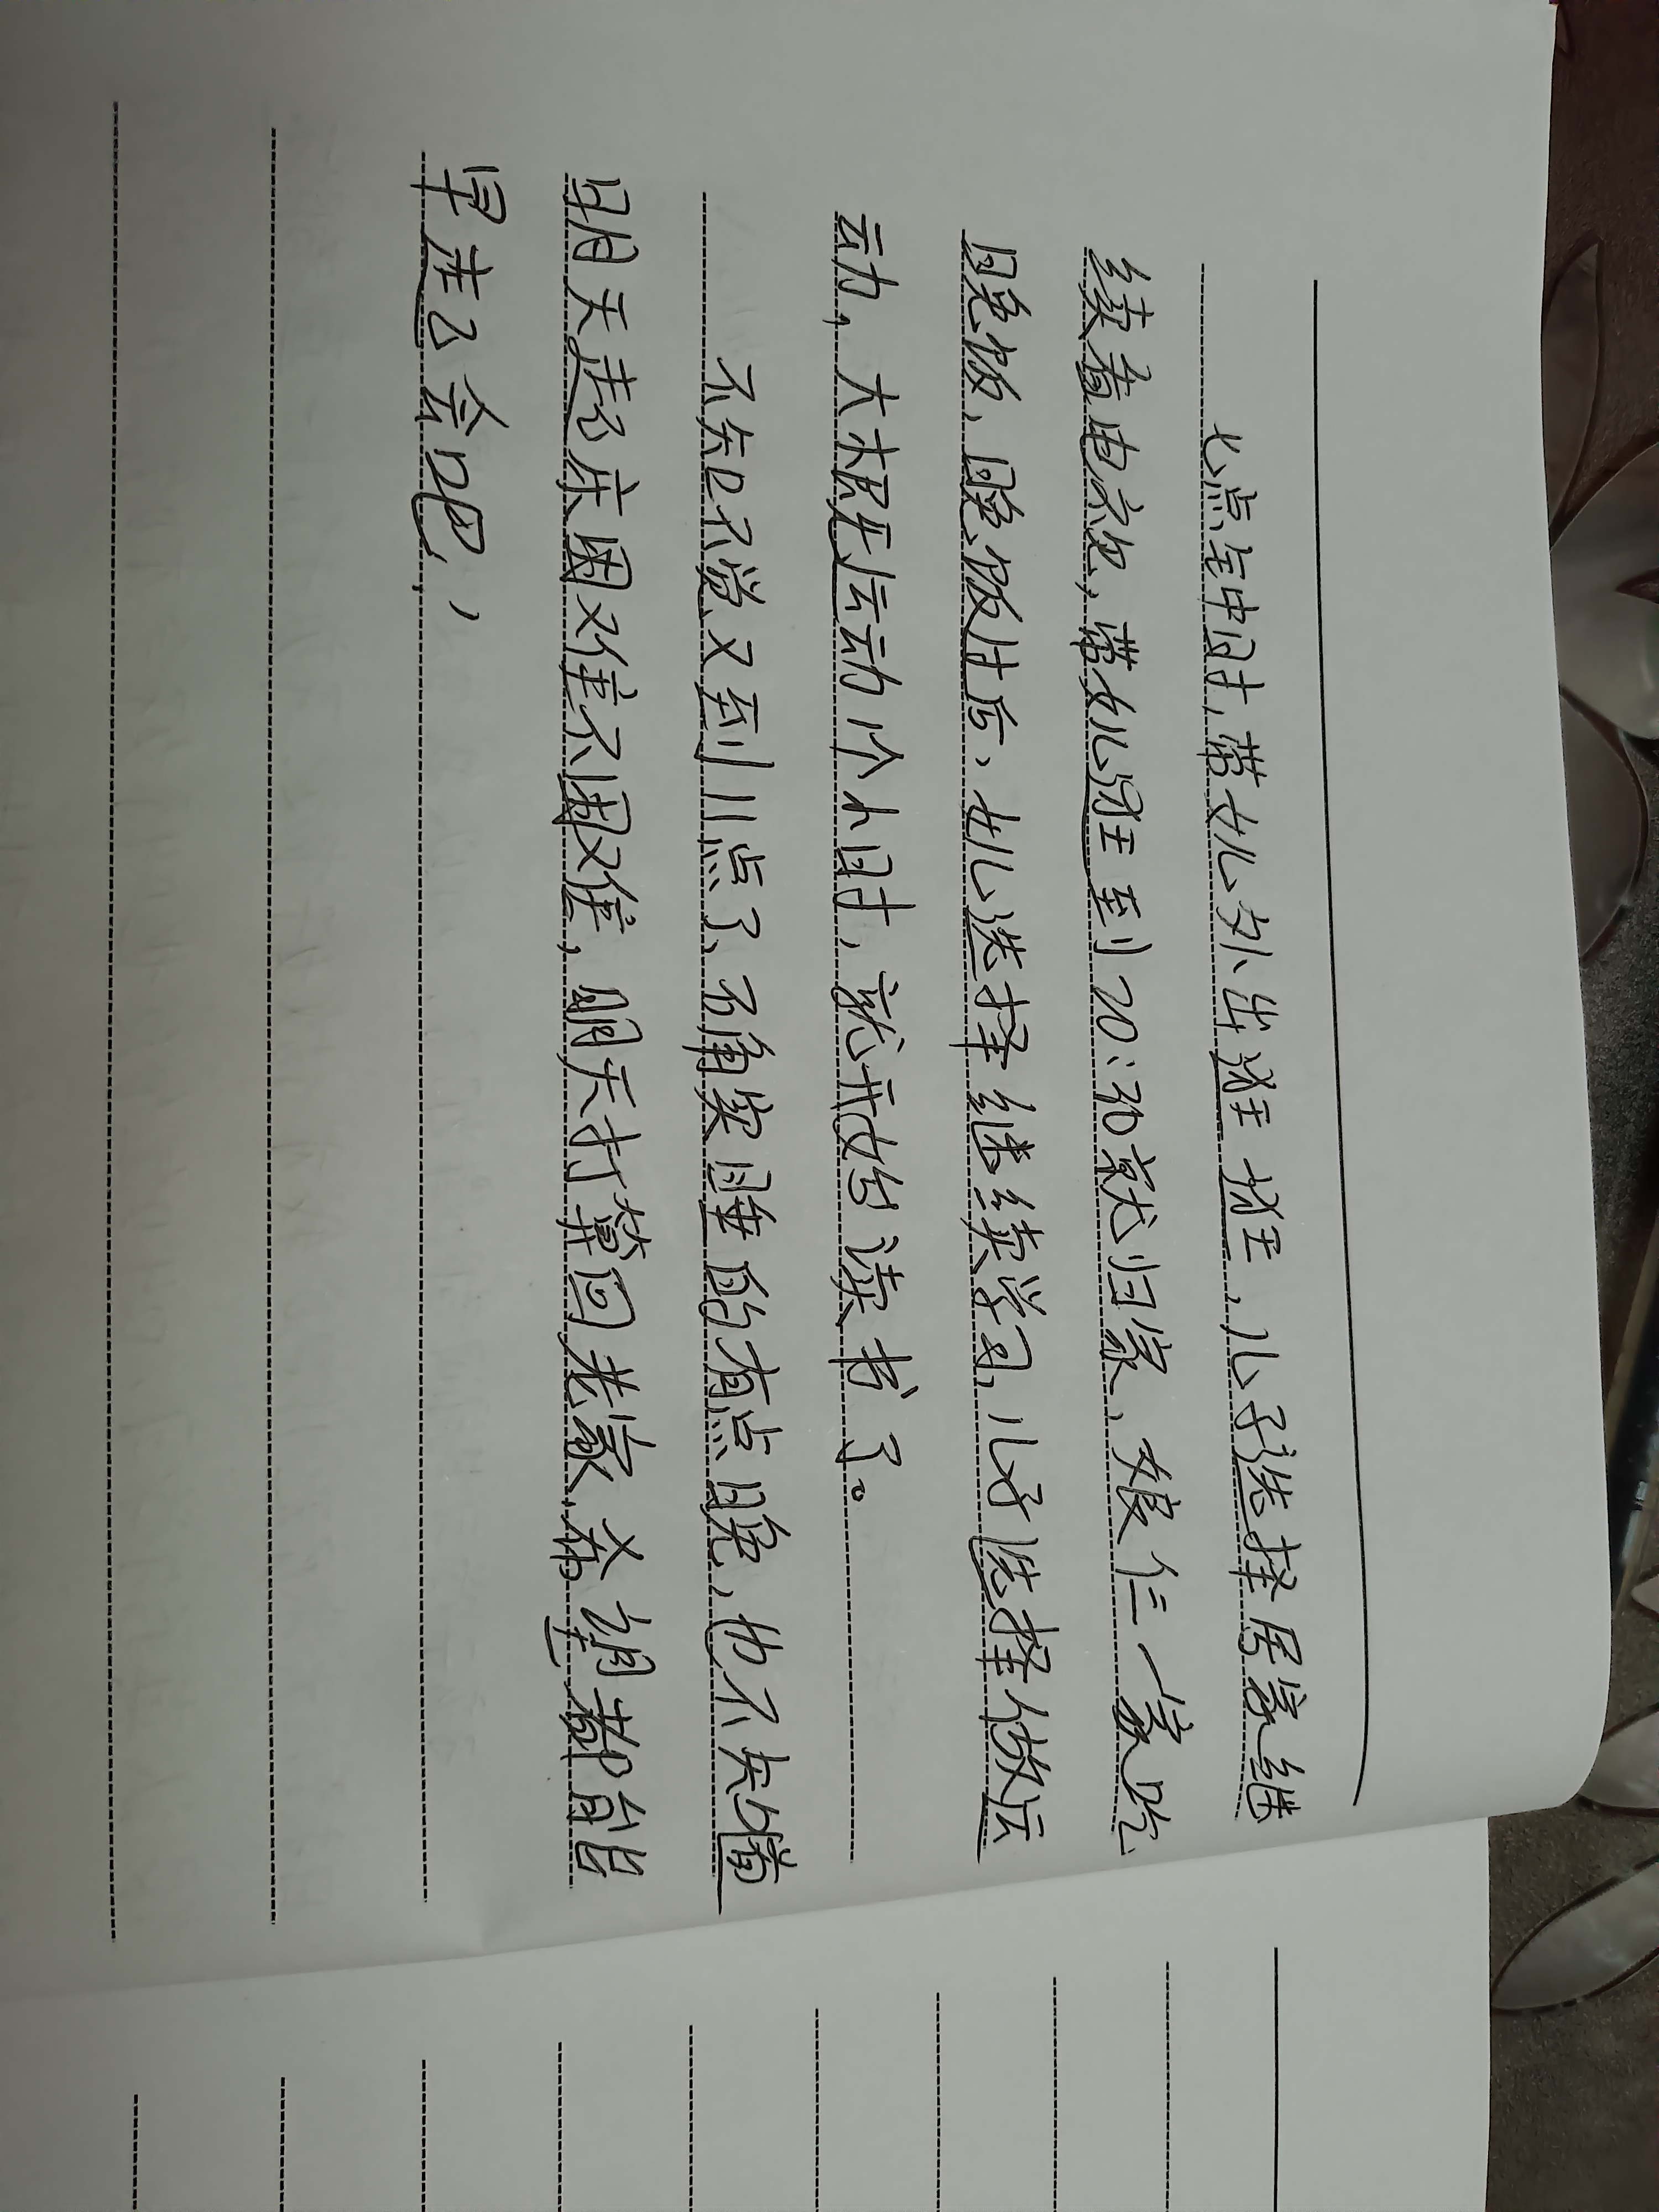 七点钟时,带女儿外出逛逛,儿子选择居家继
续看电视,带女儿逛到20:30就归家,娘仨一家吃
晚饭,晚饭过后,女儿选择继续学习,儿子选择做运
动,大概运动个小时,就开始读书了。
不知不觉又到11点了,确实睡的有点晚,也不知道
明天起床困难不困难,明天打算回老家,希望都能
早起会吧,